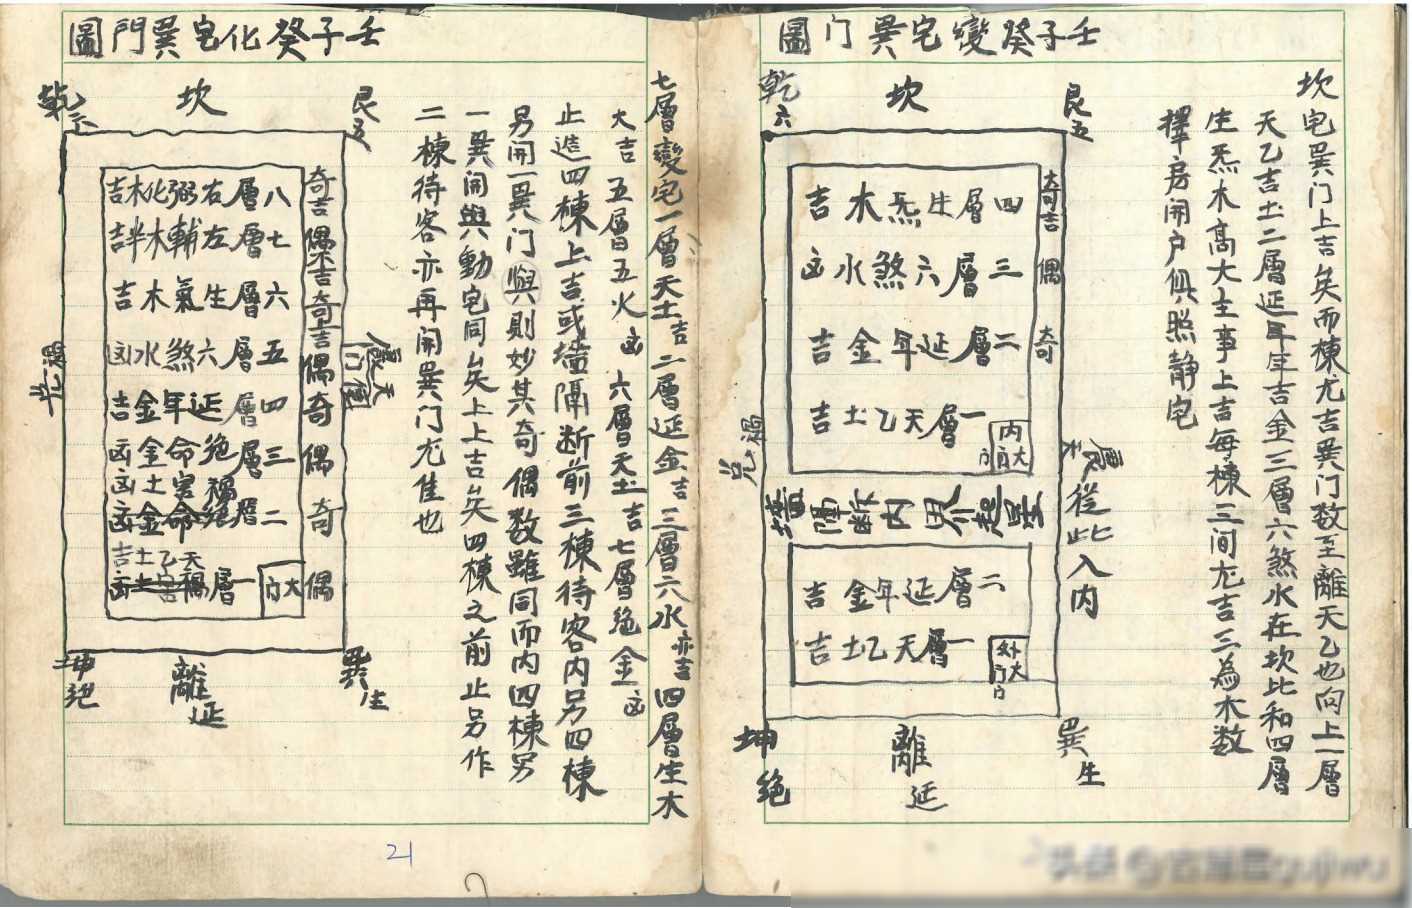 壬子癸變宅巽门圖
坎宅巽门上吉矣而棟尤吉巽门数至離天乙也向上一層
天乙吉土二層延年生吉金三層六煞水在坎比和四層
生炁木高大主事上吉每棟三间尤吉三為木数
擇房開户俱照静宅
艮五
坎
乾六
奇吉
偶
奇
四層生炁木吉
三層六煞水凶
二層延年金吉
一層天乙土吉
内大门
震天
從此入内
禍
兌
墻隔断内界起星
二層延年金吉
一層天乙土吉
外大门
巽生
離延
坤絶
七層變宅一層天土吉二層延金吉三層六水亦吉四層生木
大吉五層五火凶六層天土吉七層絶金凶
止造四棟上吉或墻隔断前三棟待客内另四棟
另開一巽门與則妙其奇偶数雖同而内四棟另
一巽開與動宅同矣上上吉矣四棟之前止另作
二棟待客亦再開巽门尤佳也
壬子癸化宅巽門圖
艮五
坎
乾六
奇吉
偶不吉
奇上吉
偶
奇
偶
奇
偶
八層右弼化木吉
七層左輔木半吉
六層生氣木吉
五層六煞水凶
四層延年金吉
三層絶命金凶
禍害土凶
二層絶命金凶
天乙土吉
一層禍害土凶
大门
震天
禍
兌
巽生
離延
坤絶
21